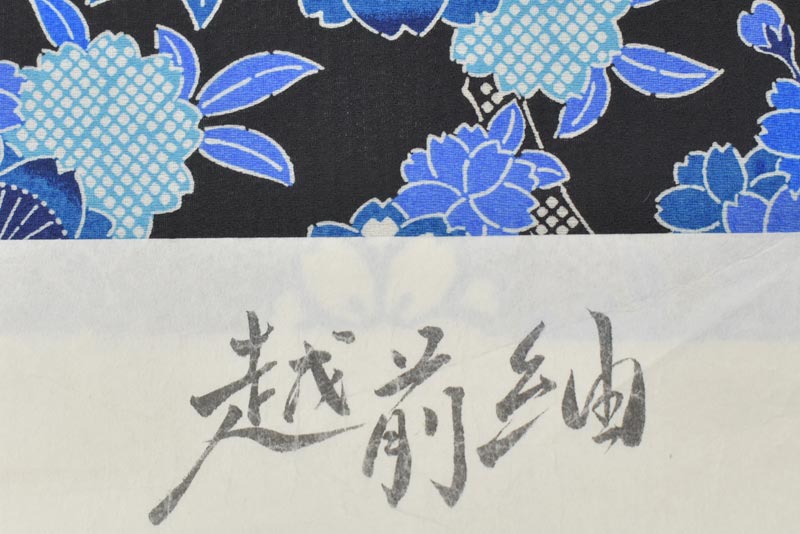 越前紬